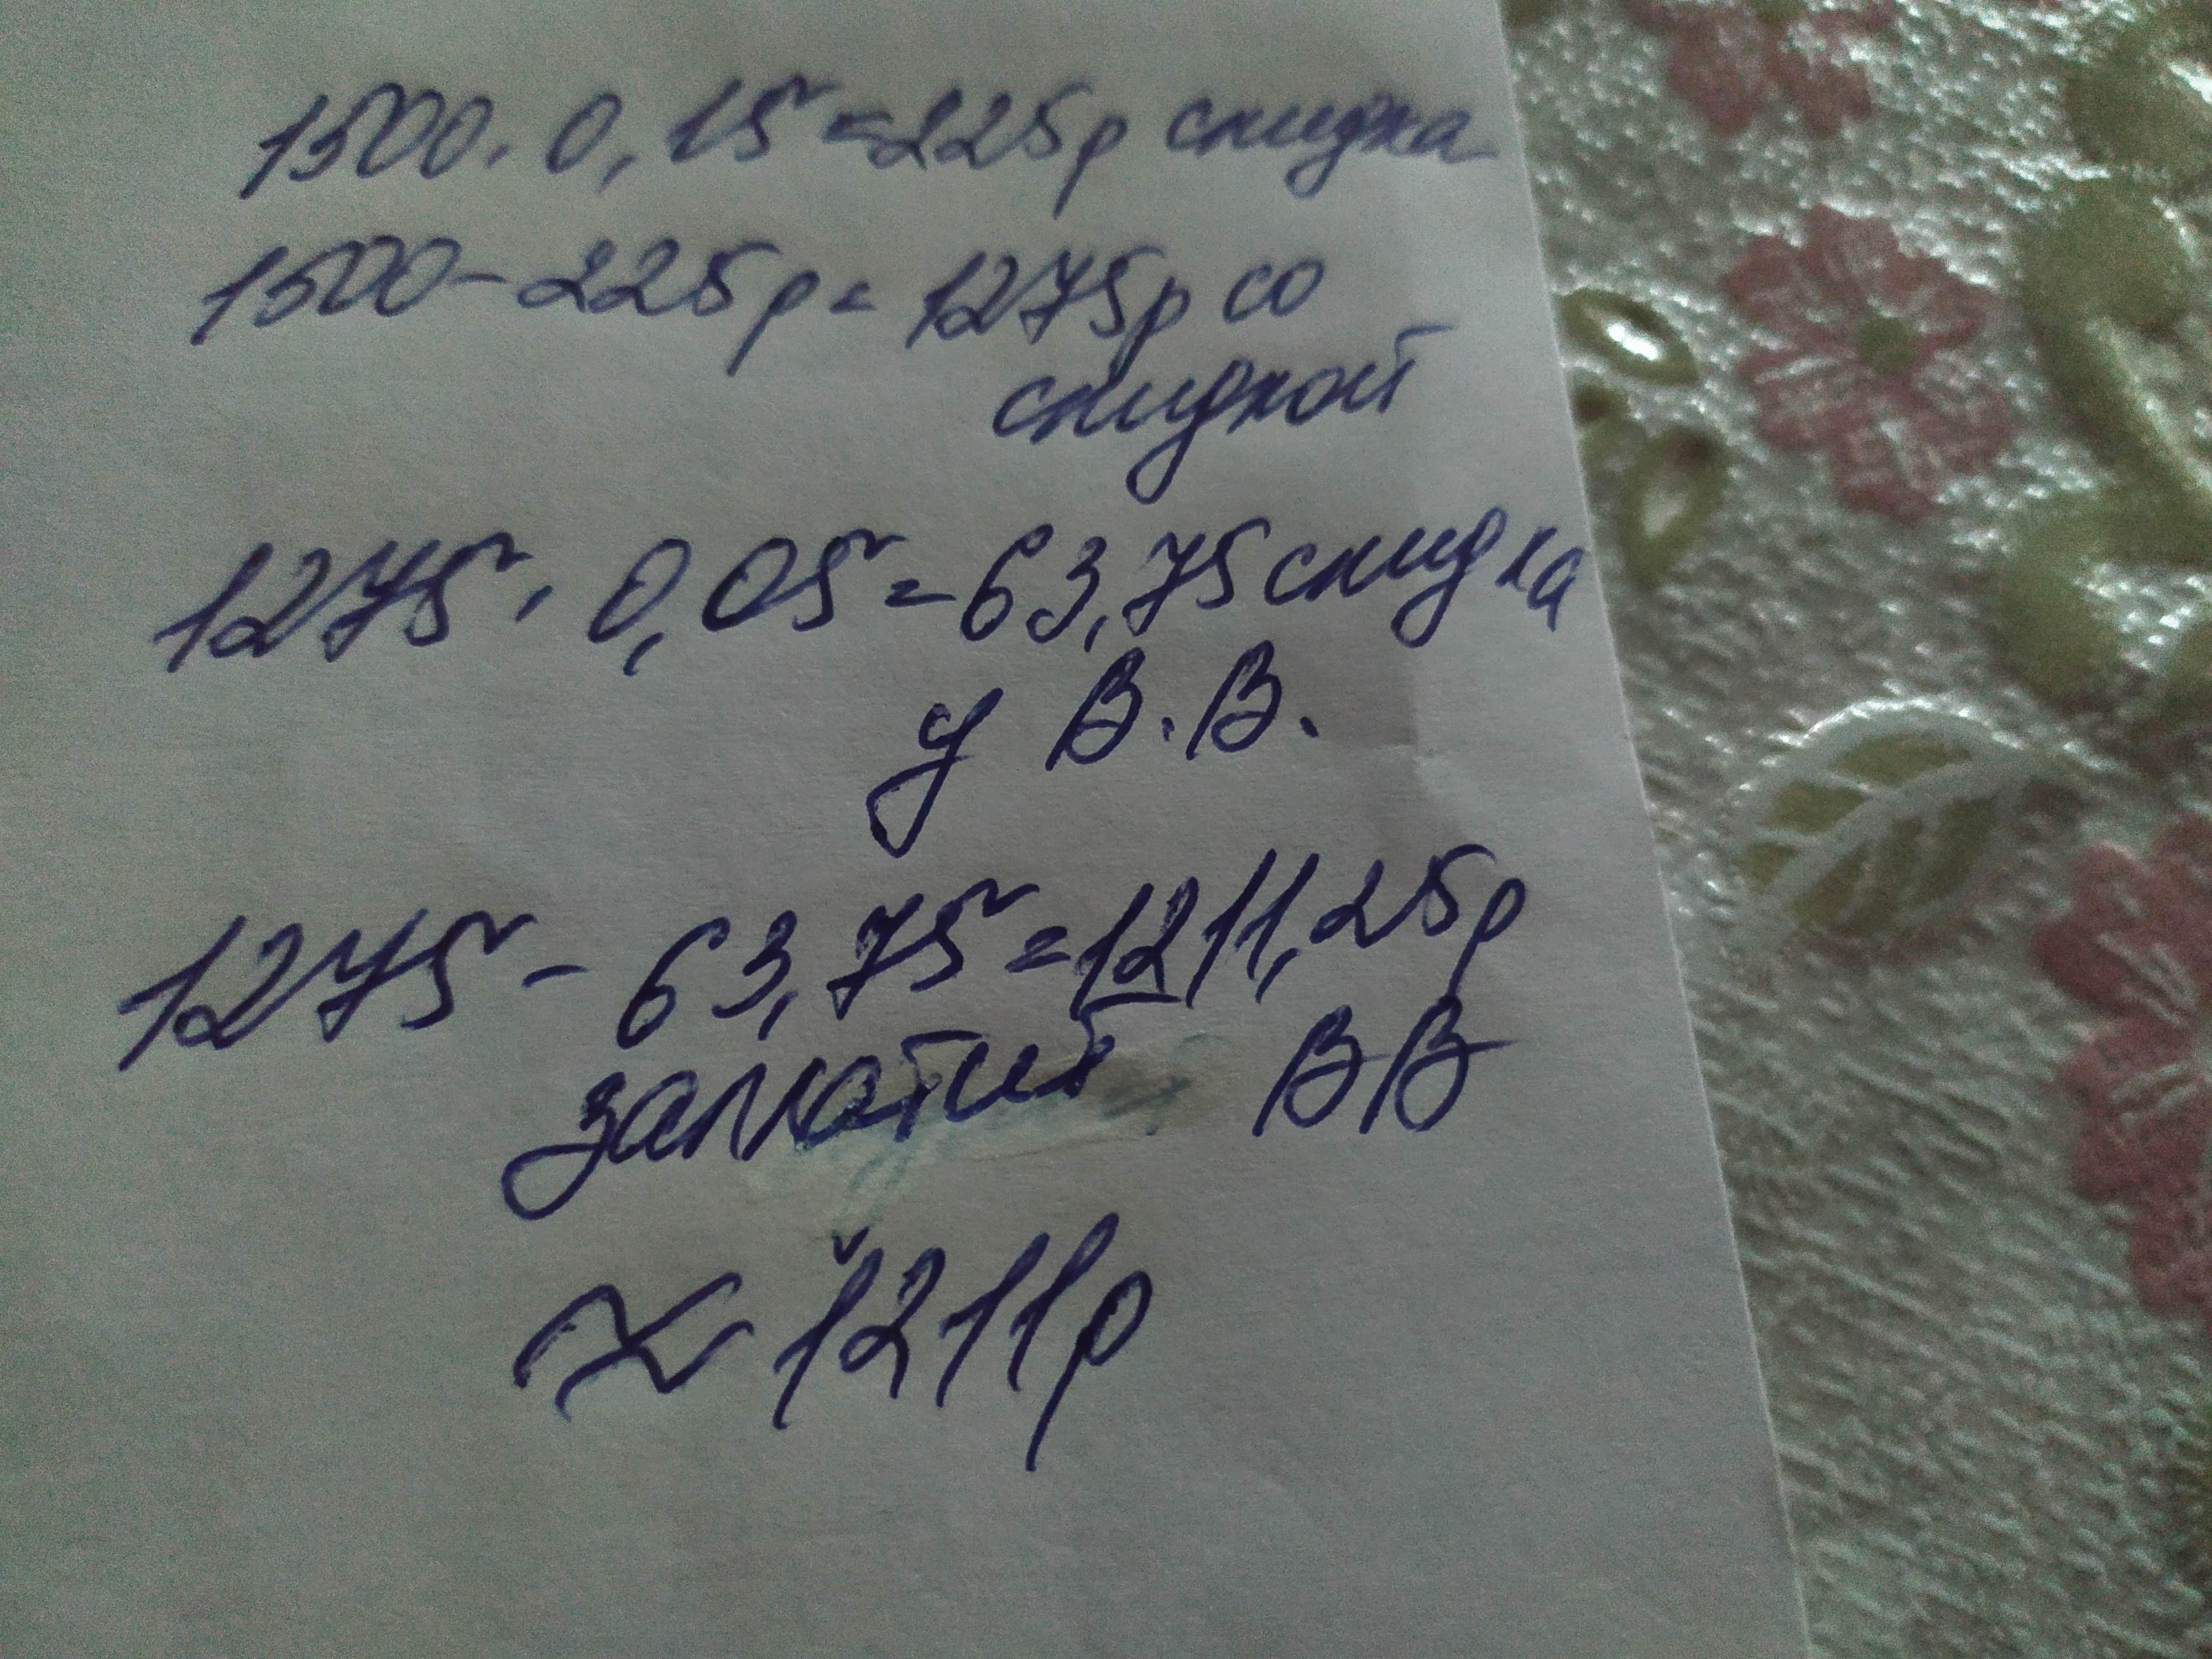 1500. 0,15=225р скидка
1500-225р=1275р со
скидкой
1275. 0,05=63,75 скидка
у В.В.
1275-63,75=1211,25р
заплатит ВВ
≈1211р